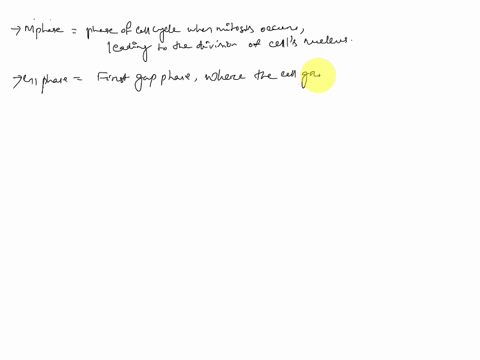 → M phase = phase of cell cycle when mitosis occurs,
leading to the division of cell's nucleus.
→ G1 phase = First gap phase, where the cell